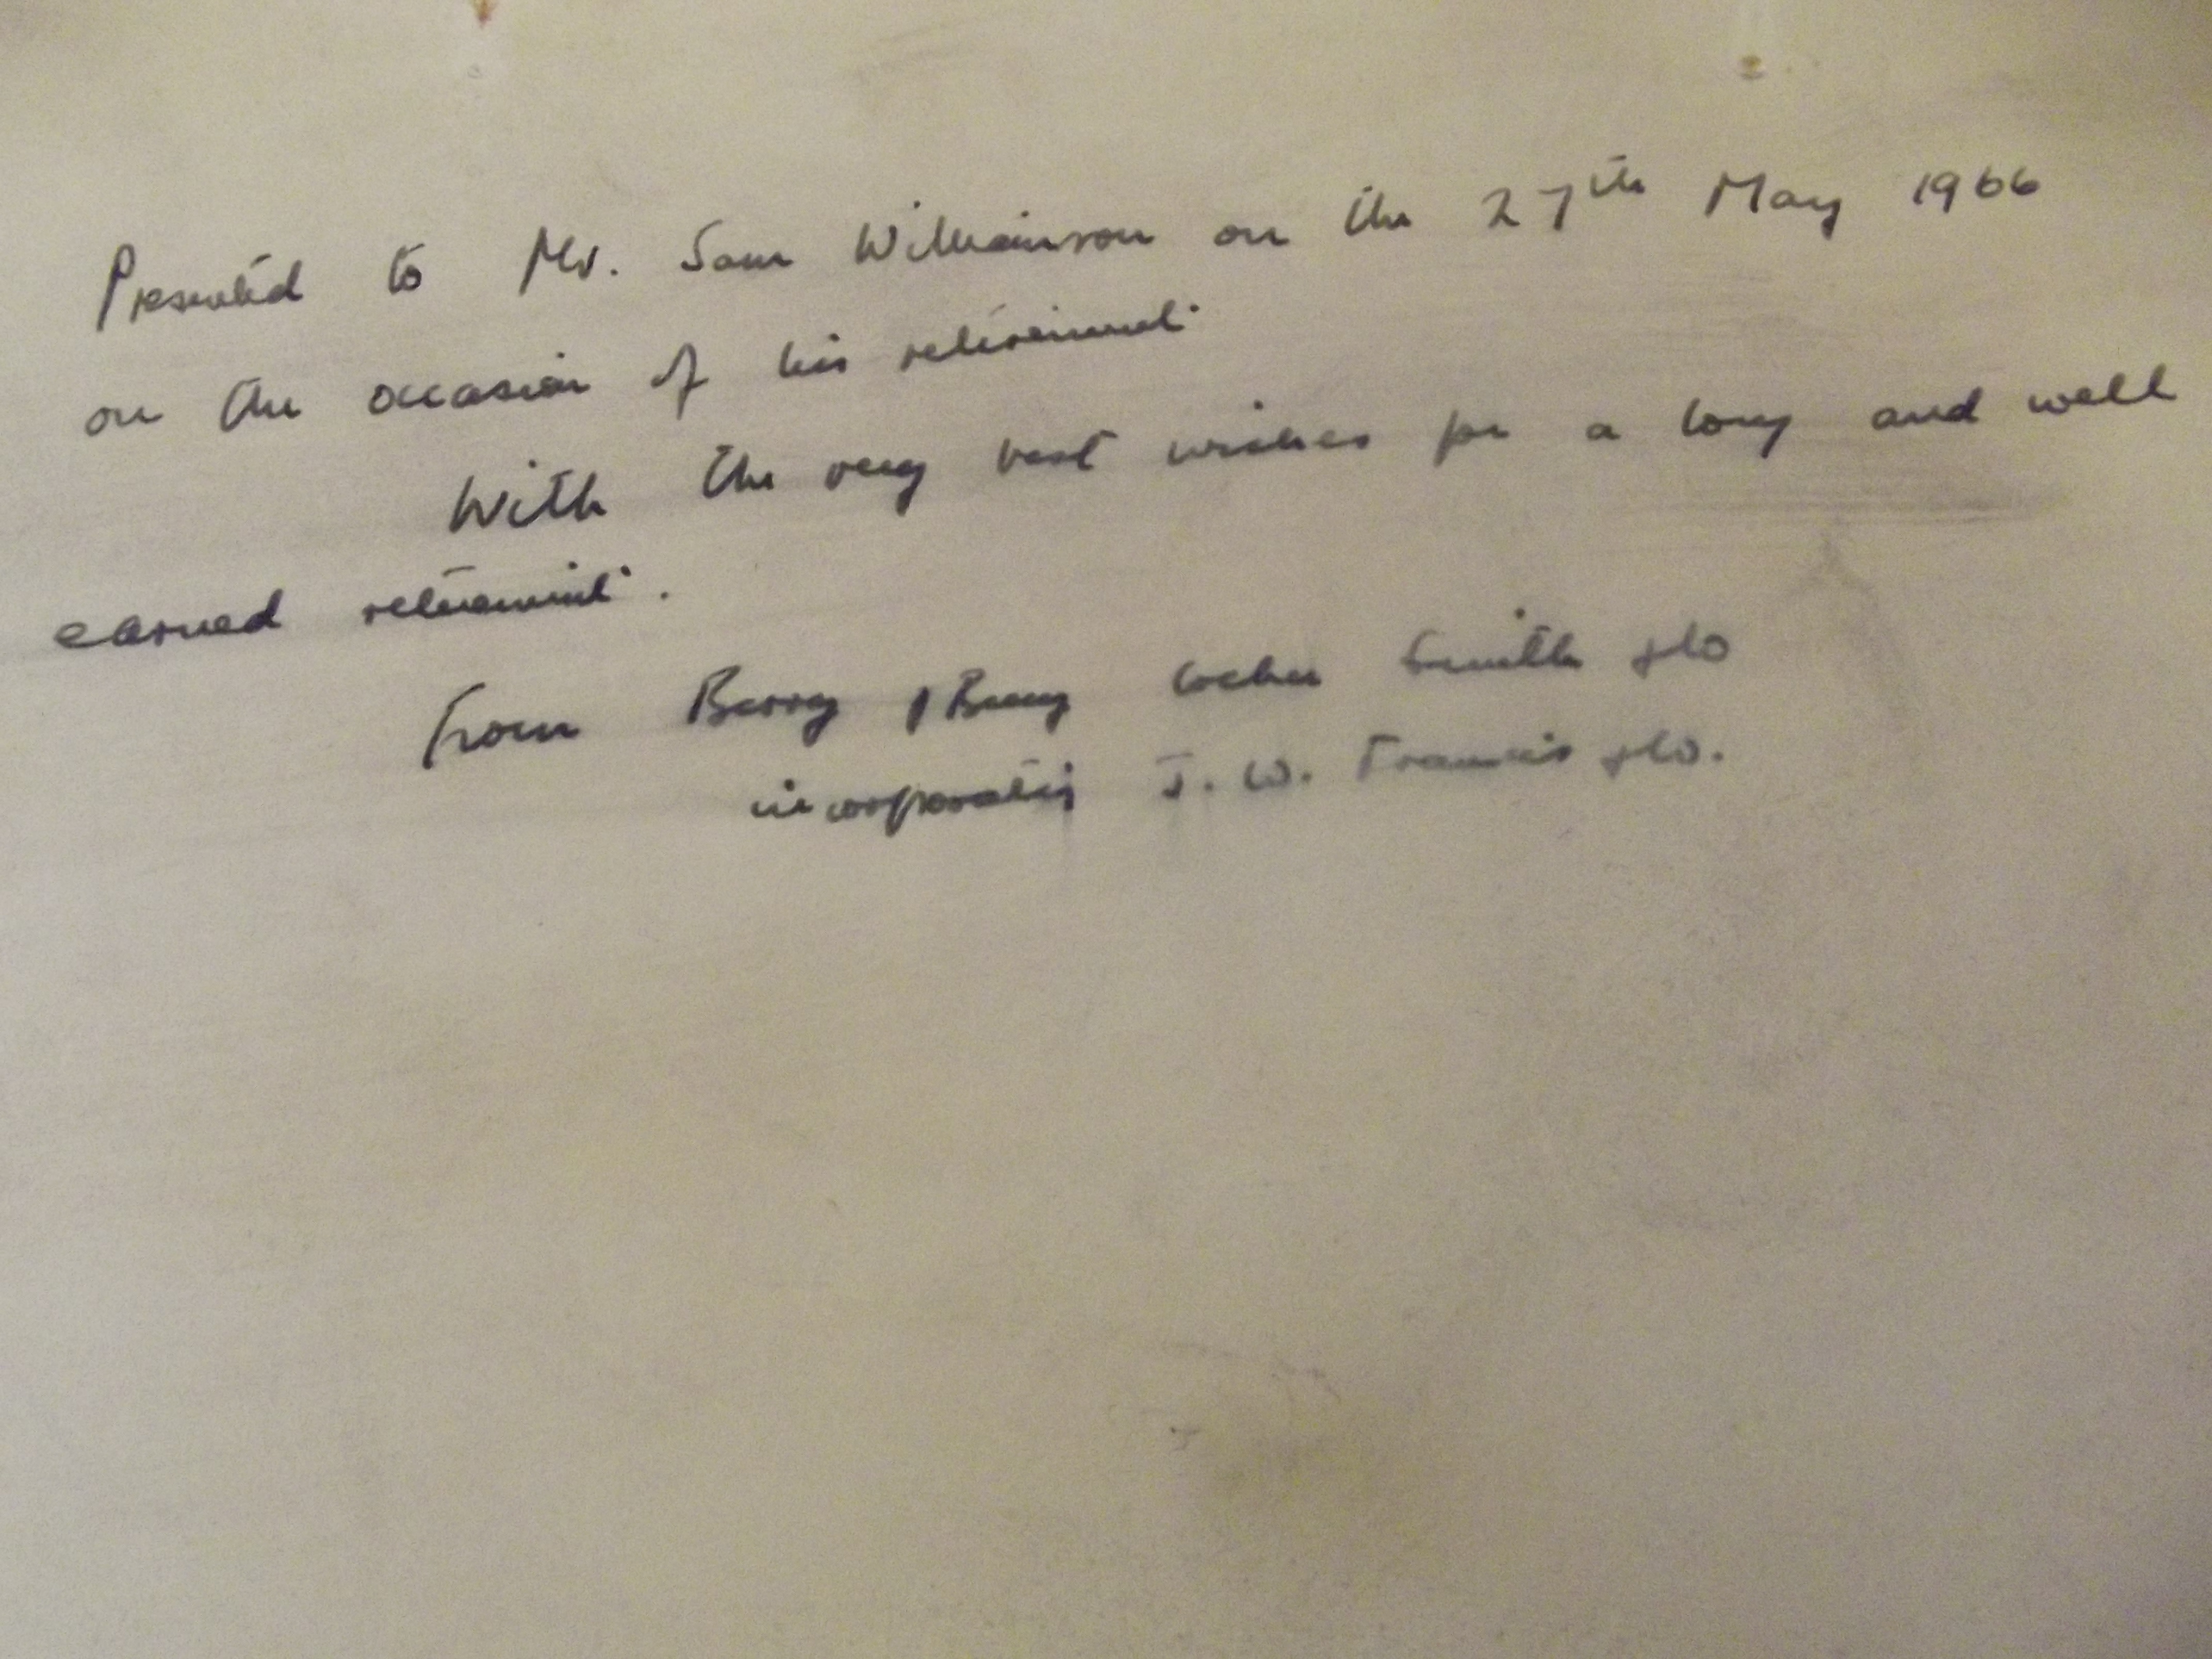 Presented to Mr. Sam Wilkinson on the 27th May 1966
on the occasion of his retirement
With the very best wishes for a long and well
earned retirement.
From Berry Smith & Co
incorporating J. W. Francis & Co.